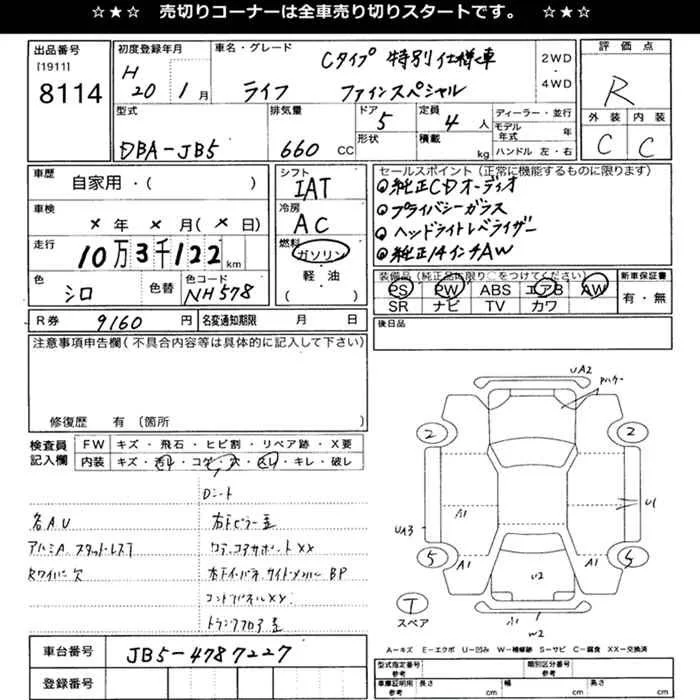 ☆★☆ 売切りコーナーは全車売り切りスタートです。 ☆★☆
出品番号
[1911]
8114
初度登録年月
H
20 1月
車名・グレード
Cタイプ 特別仕様車
ライフ ファインスペシャル
2WD
・
4WD
評価点
R
外装 内装
C C
型式
DBA-JB5
排気量
660 CC
ドア
5
形状
定員
4 人
積載
kg
ディーラー・並行
モデル年式 年
ハンドル 左・右
車歴
自家用・( )
シフト
IAT
車検
×年×月(×日)
冷房
AC
走行
10万3千122km
燃料
ガソリン
軽・油
( )
色
シロ
色替
色コード
NH578
セールスポイント(正常に機能するものに限ります)
純正CDオーディオ
プライバシーガラス
ヘッドライトレベライザー
純正14インチAW
装備品(純正品に限り○をつけてください)
PS PW ABS エアB AW
SR ナビ TV カワ
新車保証書
有・無
R券 9160円
名変通知期限 月 日
後日品
注意事項申告欄(不具合内容等は具体的に記入して下さい)
修復歴 有(箇所
検査員
記入欄
FW キズ・飛石・ヒビ割・リペア跡・X要
内装 キズ・汚レ・コゲ・穴・スレ・キレ・破レ
各AU
アルミA.
Rワイパー欠
XX
BP
XX.
UA2
2
2
U1
UA3
A1
5
5
A1
A1
U2
T
スペア
W2
A=キズ E=エクボ U=凹み W=補修跡 S=サビ C=腐食 XX=交換済
車台番号 JB5-4787227
登録番号
型式指定番号
参考
類別区分番号
参考
車庫証明用
参考
長さ cm
幅 cm
高さ cm